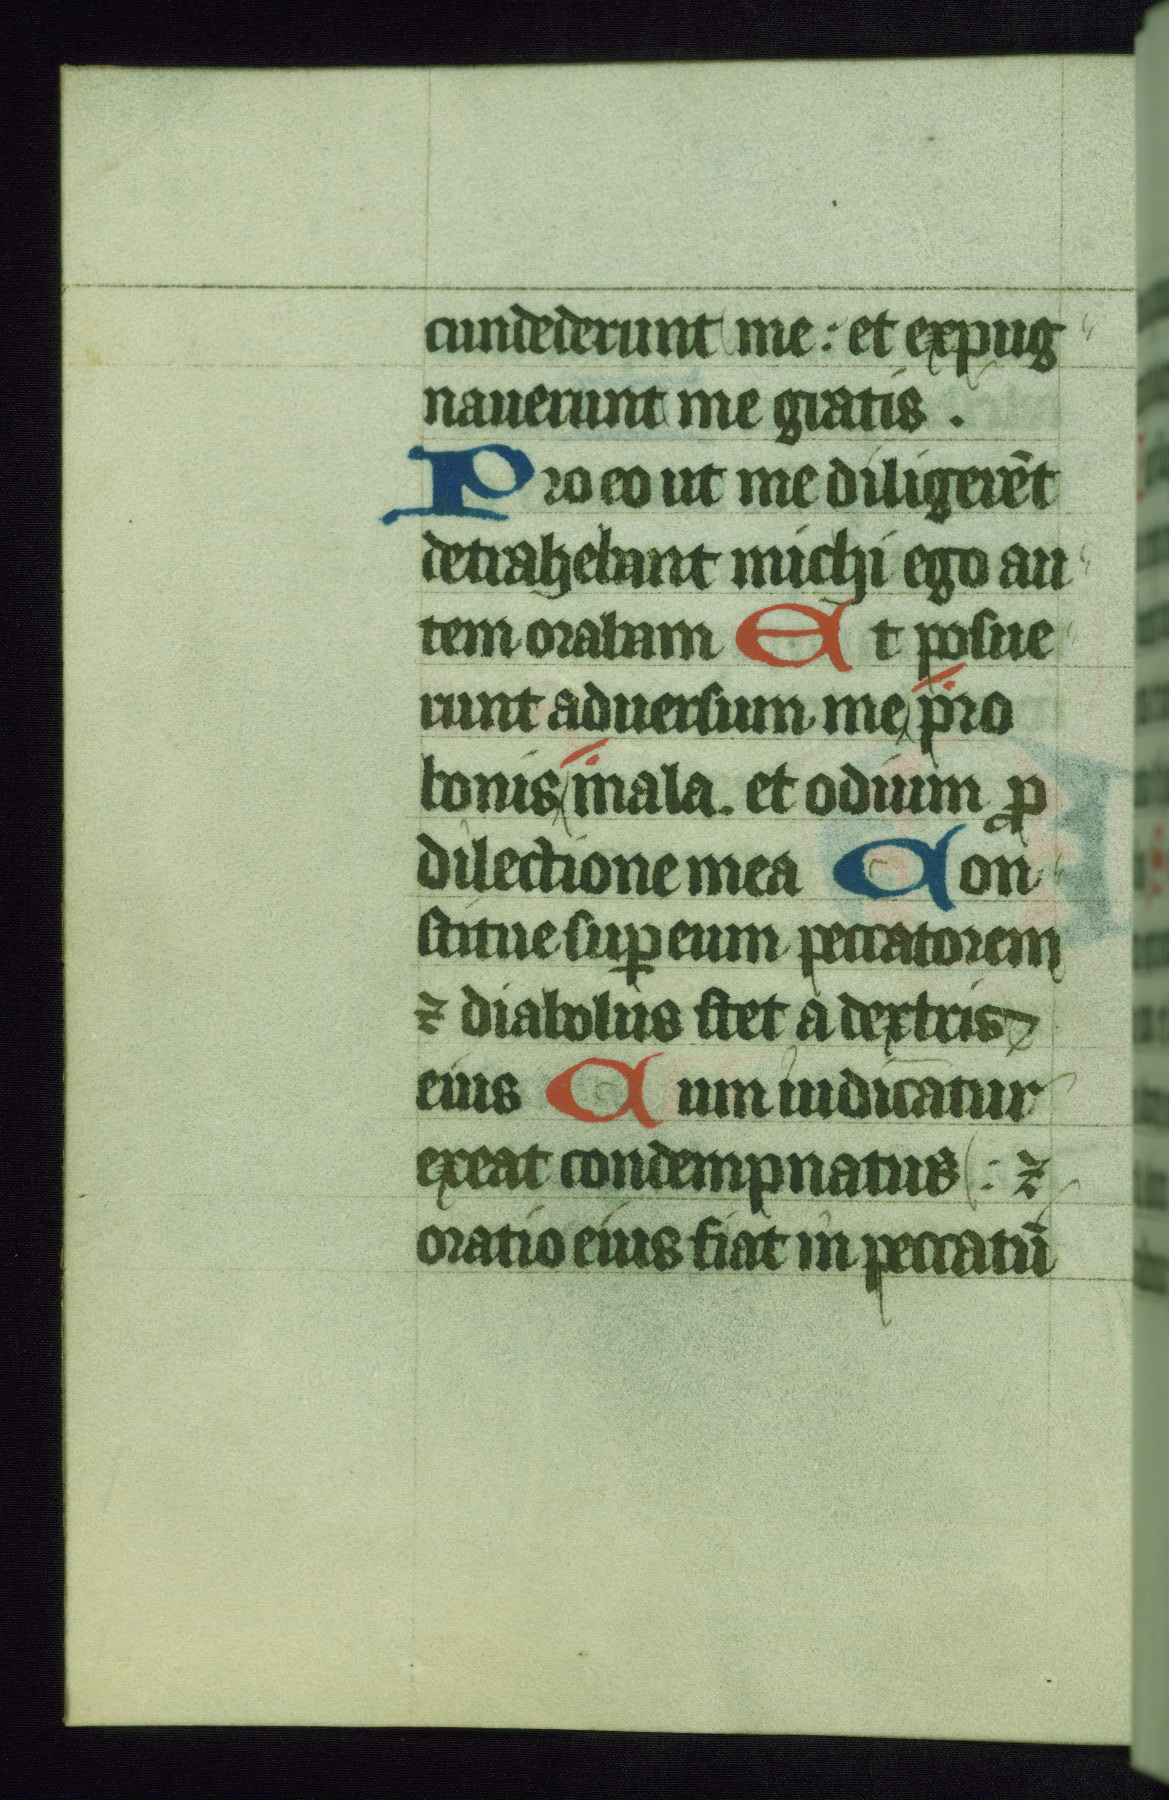 cundederunt me : et expug
nauerunt me gratis .
Pro eo ut me diligerēt
detrahebant michi ego au
tem orabam Et posue
runt aduersum me pro
bonis mala. et odium ꝓ
dilectione mea Con
stitue suꝑ eum peccatorem
⁊ diabolus stet a dextris
eius Cum iudicatur
exeat condempnatus : ⁊
oratio eius fiat in peccatū